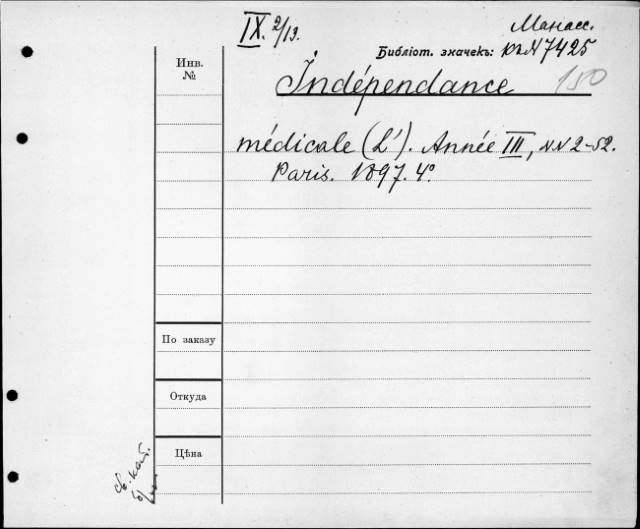 IX. 2/13.
Манасс.
Библіот. значекъ: № 7425
Инв.
№
Indépendance 150
médicale (L'). Année III, N.N 2-52.
Paris. 1897. 4°.
По заказу
Откуда
Цѣна